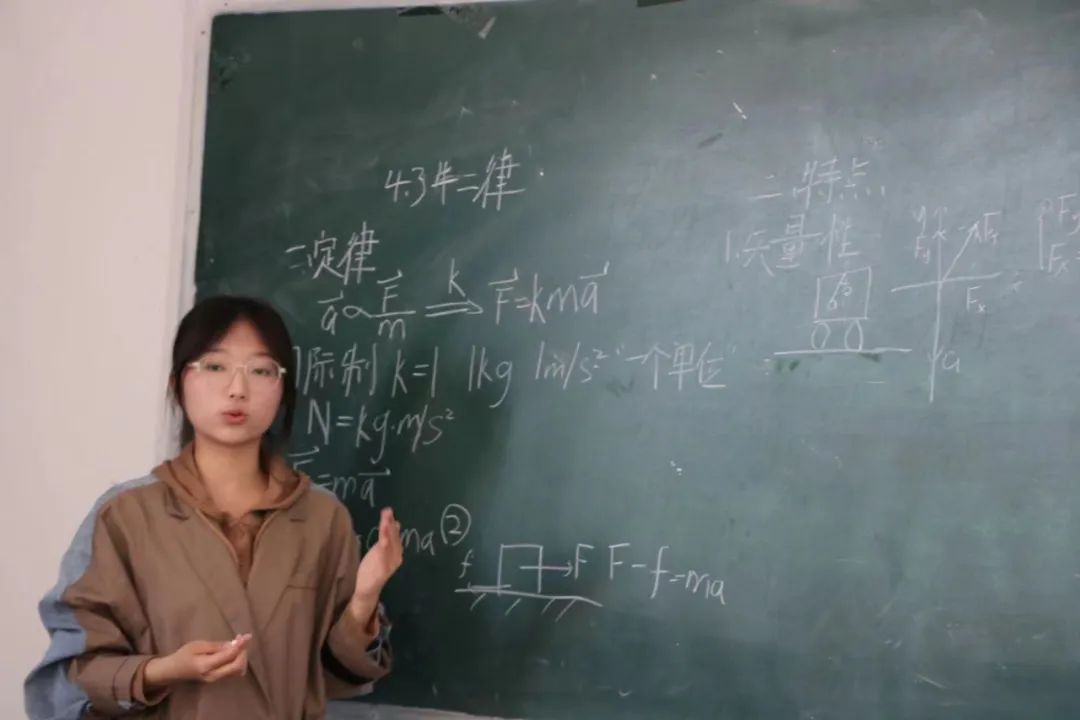 4.3牛二律
二定律
a⃗∝F⃗/m ⇒k F⃗=kma⃗
际制 k=1 1kg 1m/s² "一个单位"
N=kg·m/s²
=ma⃗
ma ②
f F F-f=ma
二.特点
1.矢量性
Fy F Fx
a
Fy
Fx=